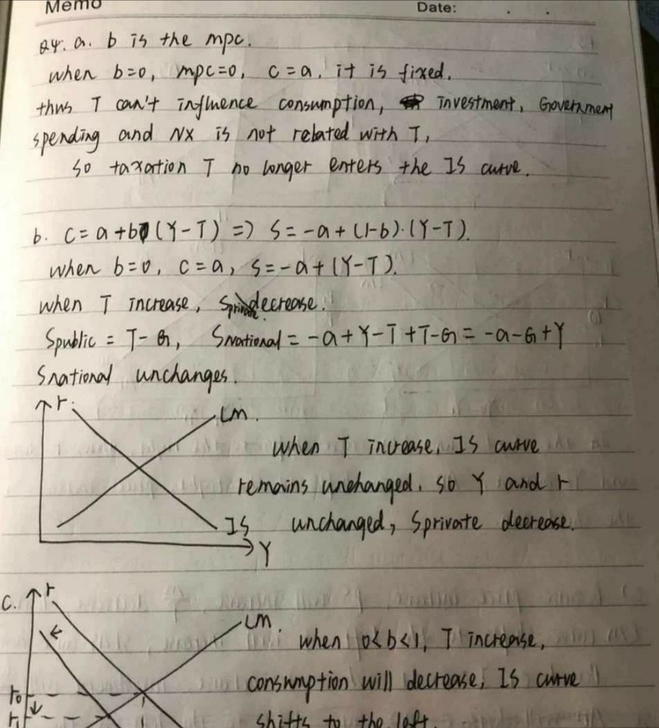 Memo Date: . .
Q4. a. b is the mpc.
when b=0, mpc=0, c=a. it is fixed.
thus T can't influence consumption, investment, Government
spending and NX is not related with T,
so taxation T no longer enters the IS curve.
b. c=a+b(Y-T) => S=-a+(1-b)·(Y-T).
when b=0, c=a, S=-a+(Y-T).
when T increase, Sprivate decrease.
Spublic = T-G, Snational = -a+Y-T+T-G = -a-G+Y
Snational unchanges.
r.
LM.
when T increase, IS curve
remains unchanged. so Y and r
IS unchanged, Sprivate decrease.
Y
c. r
LM. when 0<b<1, T increase,
r0 consumption will decrease, IS curve
r1 shifts to the left.